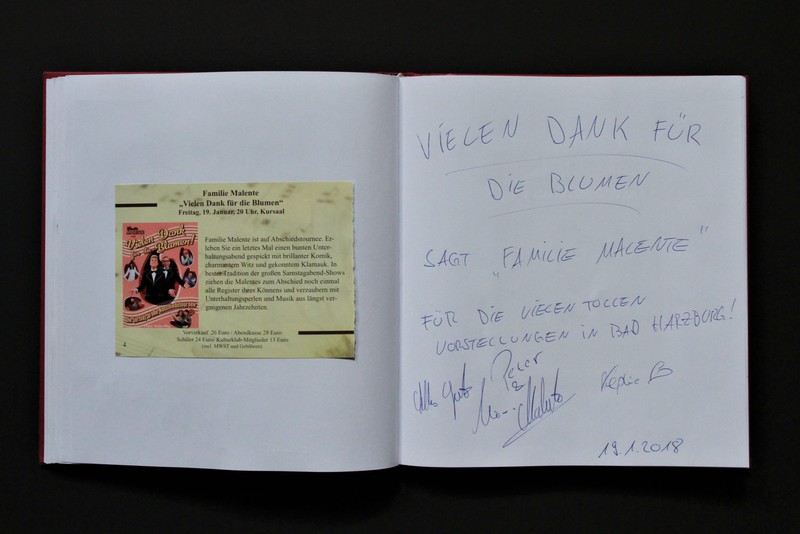 Familie Malente
„Vielen Dank für die Blumen“
Freitag, 19. Januar, 20 Uhr, Kursaal
Vielen Dank
für die
Blumen!
Familie Malente ist auf Abschiedstournee. Er-
leben Sie ein letztes Mal einen bunten Unter-
haltungsabend gespickt mit brillanter Komik,
charmantem Witz und gekonntem Klamauk. In
bester Tradition der großen Samstagabend-Shows
ziehen die Malentes zum Abschied noch einmal
alle Register ihres Könnens und verzaubern mit
Unterhaltungsperlen und Musik aus längst ver-
gangenen Jahrzehnten.
Vorverkauf 26 Euro / Abendkasse 28 Euro
Schüler 24 Euro/ Kulturklub-Mitglieder 13 Euro
(incl. MWST und Gebühren)
4
VIELEN DANK FÜR
DIE BLUMEN
SAGT „FAMILIE MALENTE"
FÜR DIE VIELEN TOLLEN
VORSTELLUNGEN IN BAD HARZBURG!
Alles Gute
Peter
&
Malente
19.1.2018